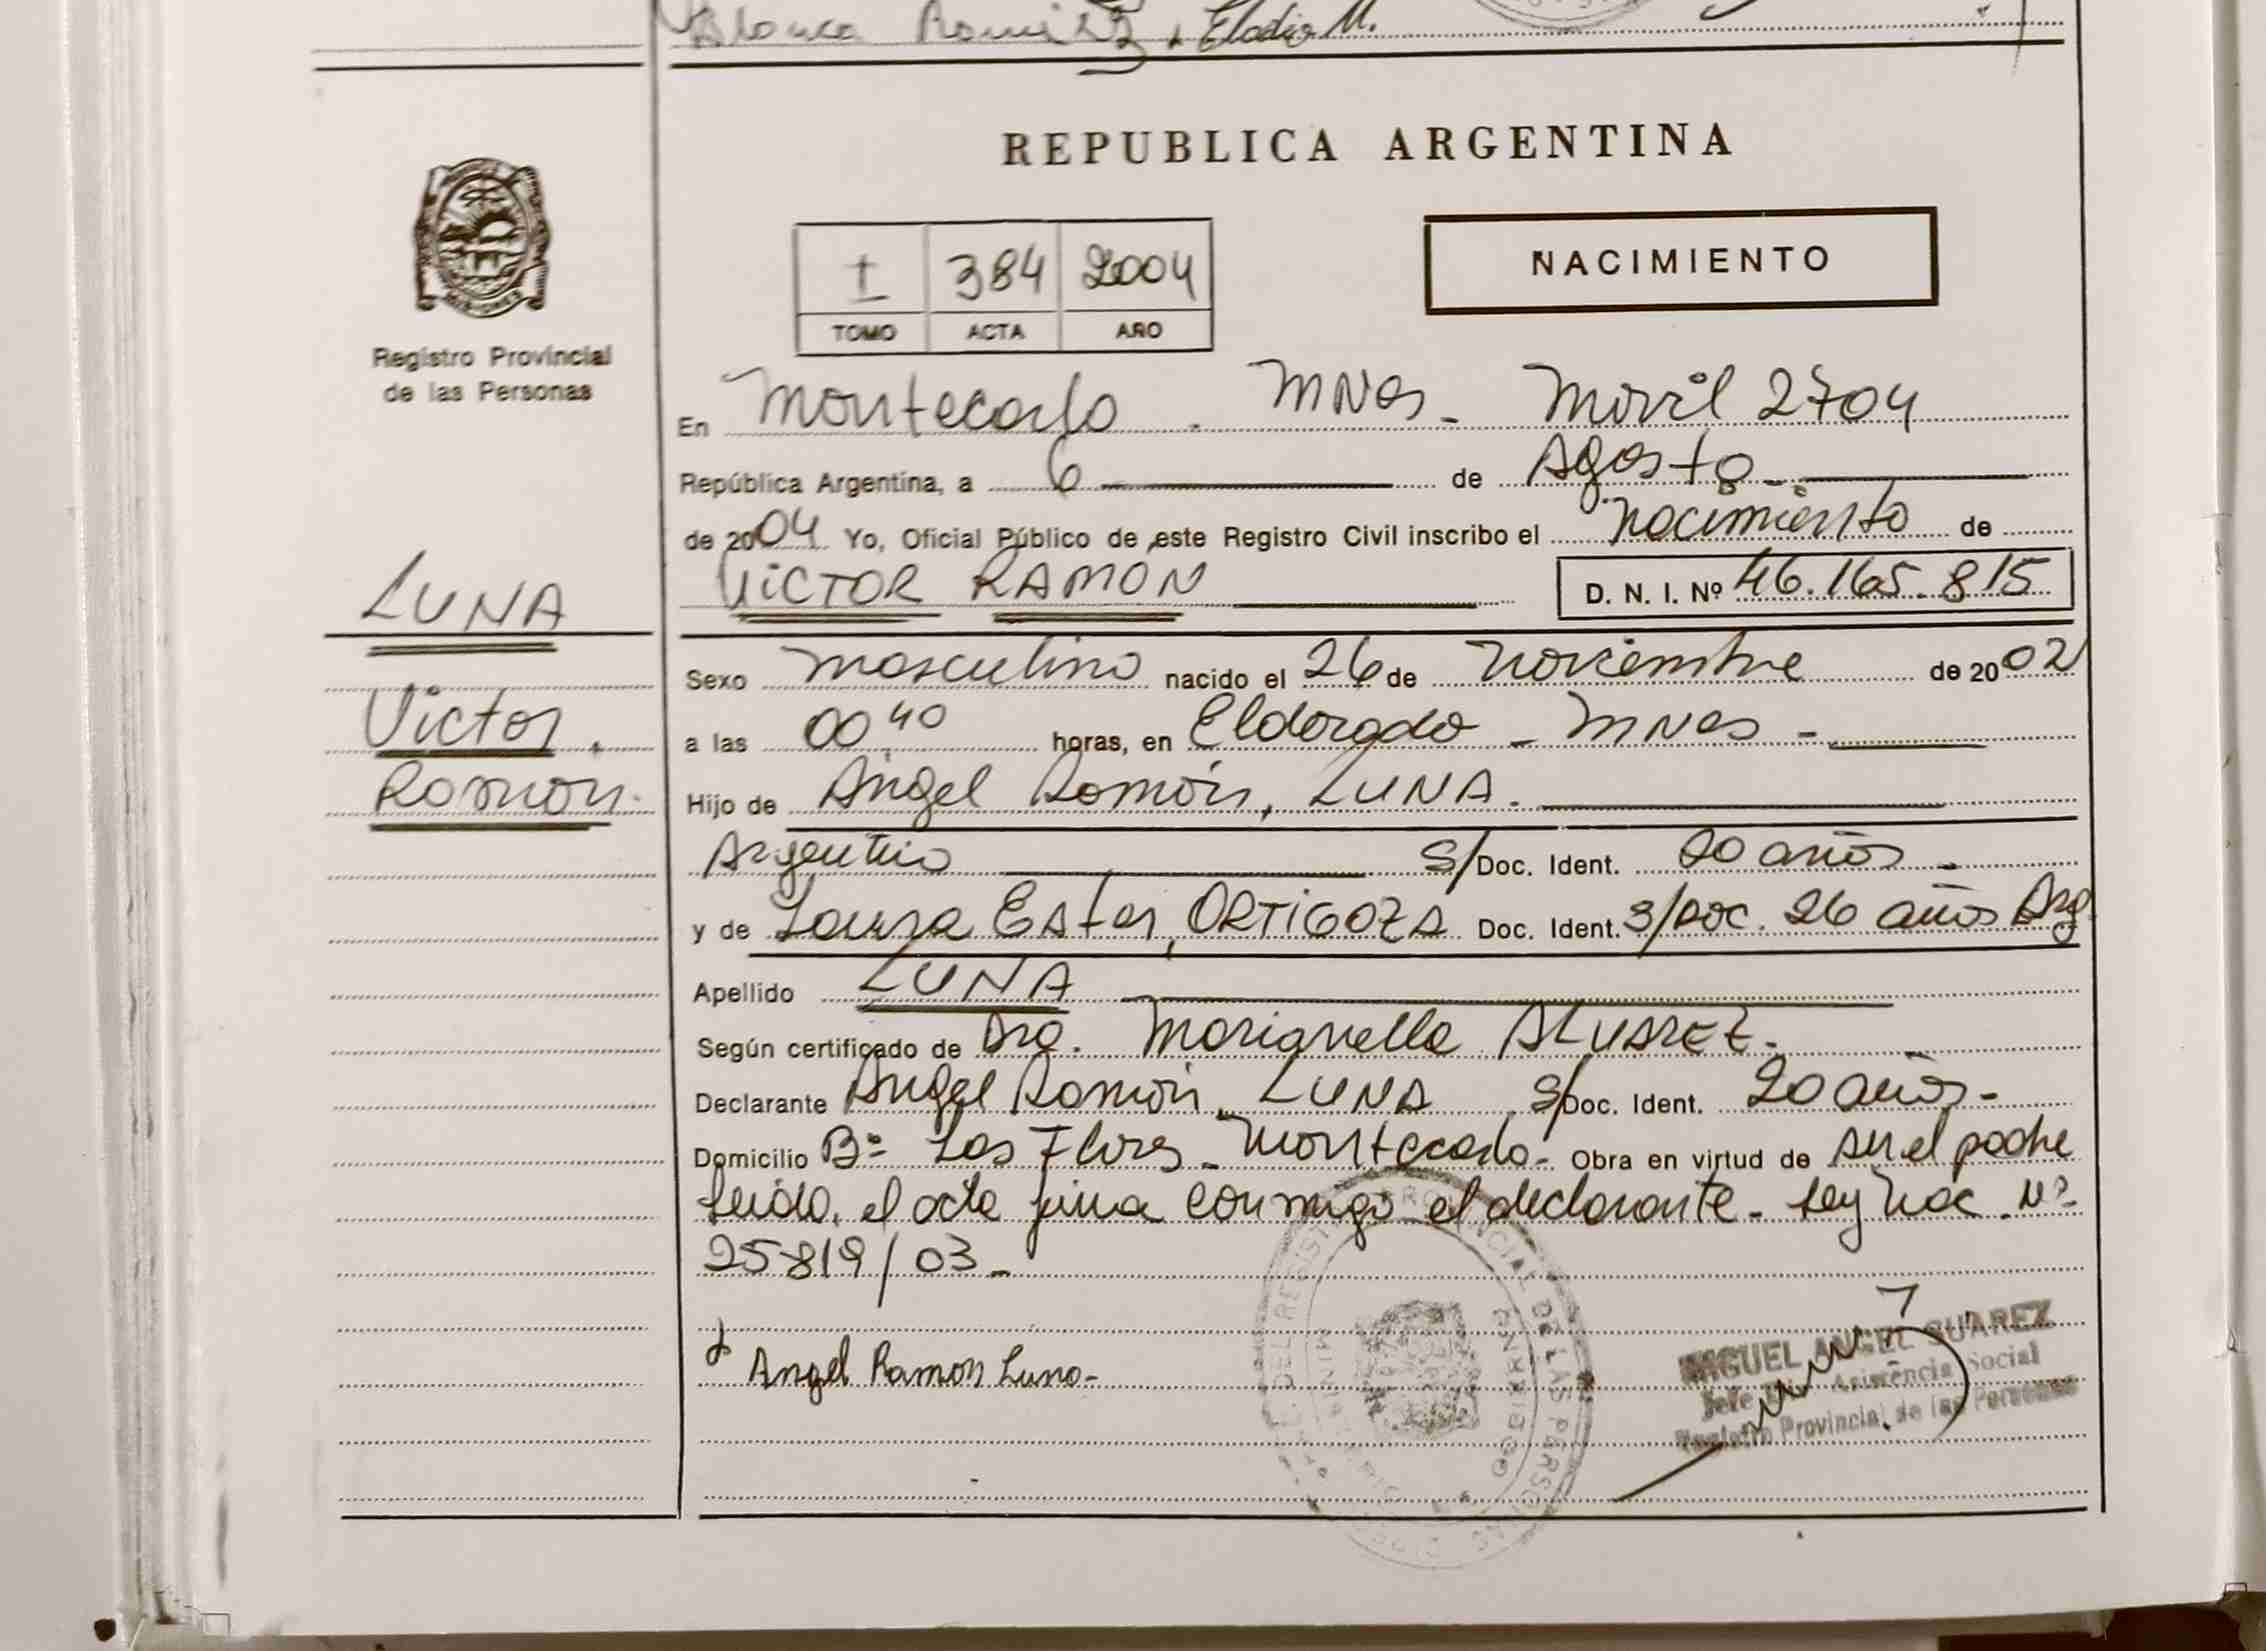 Blanca Ramirez Eladio M.
REPUBLICA ARGENTINA
Registro Provincial
de las Personas
I 384 2004
TOMO ACTA AÑO
NACIMIENTO
En Montecarlo. MNES- Movil 2704
República Argentina, a 6 de Agosto
de 2004 Yo, Oficial Público de este Registro Civil inscribo el Nacimiento de
VICTOR RAMON D. N. I. Nº 46.165.815
LUNA
Victor.
Ramon.
Sexo Masculino nacido el 26 de Noviembre de 2002
a las 00:40 horas, en Eldorado - MNES -
Hijo de Angel Ramón, LUNA.
Argentino S/Doc. Ident. 20 años -
y de Laura Ester, ORTIGOZA Doc. Ident. S/Doc. 26 años Arg.
Apellido LUNA
Según certificado de Dra. Marianella ALVAREZ.
Declarante Angel Ramón, LUNA S/Doc. Ident. 20 años-
Domicilio Bº Las Flores - Montecarlo- Obra en virtud de ser el padre
leida, el acta firma conmigo el declarante - Ley Nac. Nº
25819/03 -
Angel Ramon Luna-
MIGUEL ANGEL SUAREZ
Jefe Asistencia Social
Registro Provincial de las Personas
DEL REGISTRO PROVINCIAL DE LAS PERSONAS